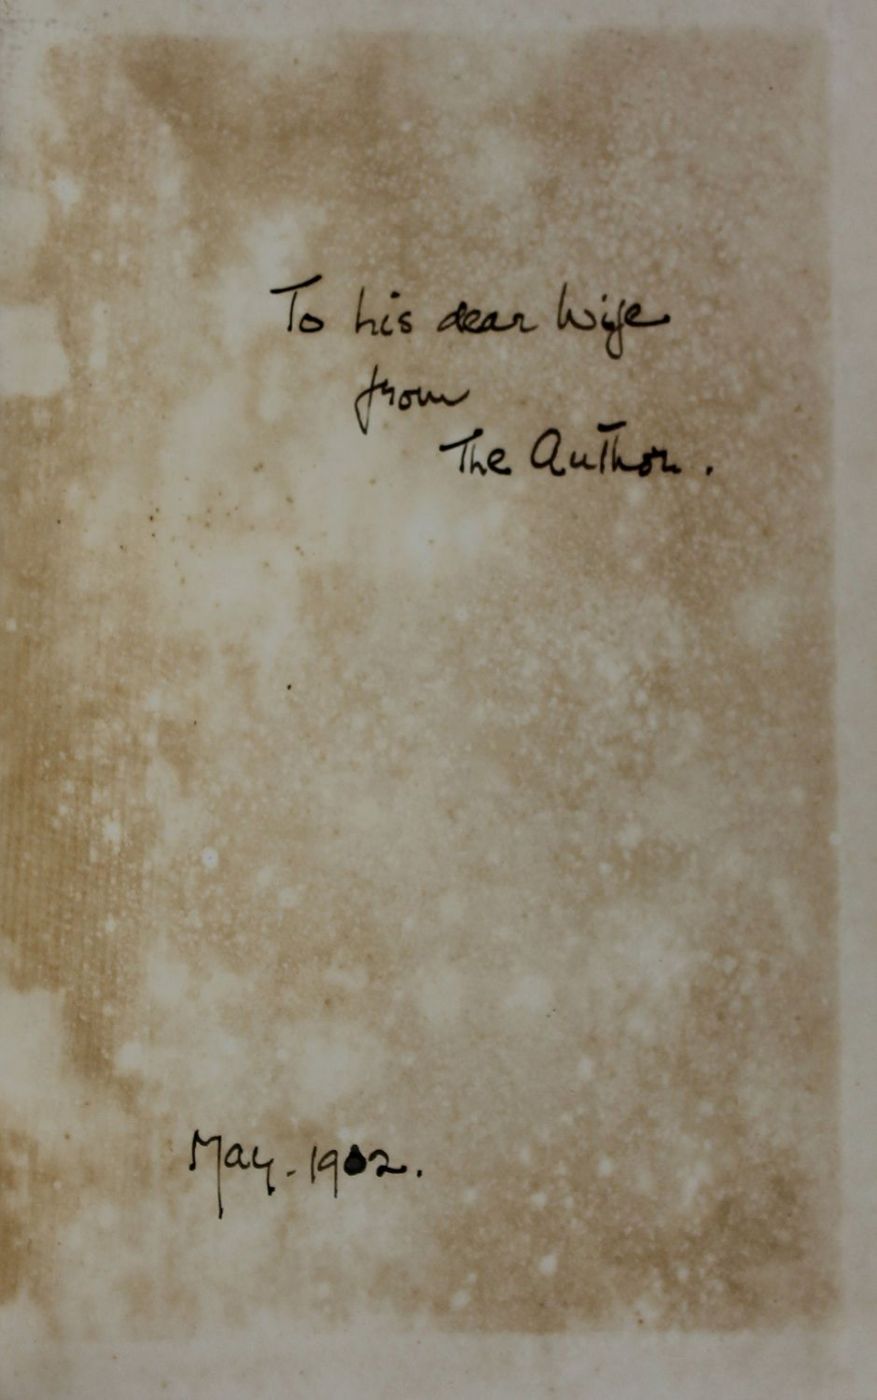 To his dear Wife
from
The Author.
May. 1902.